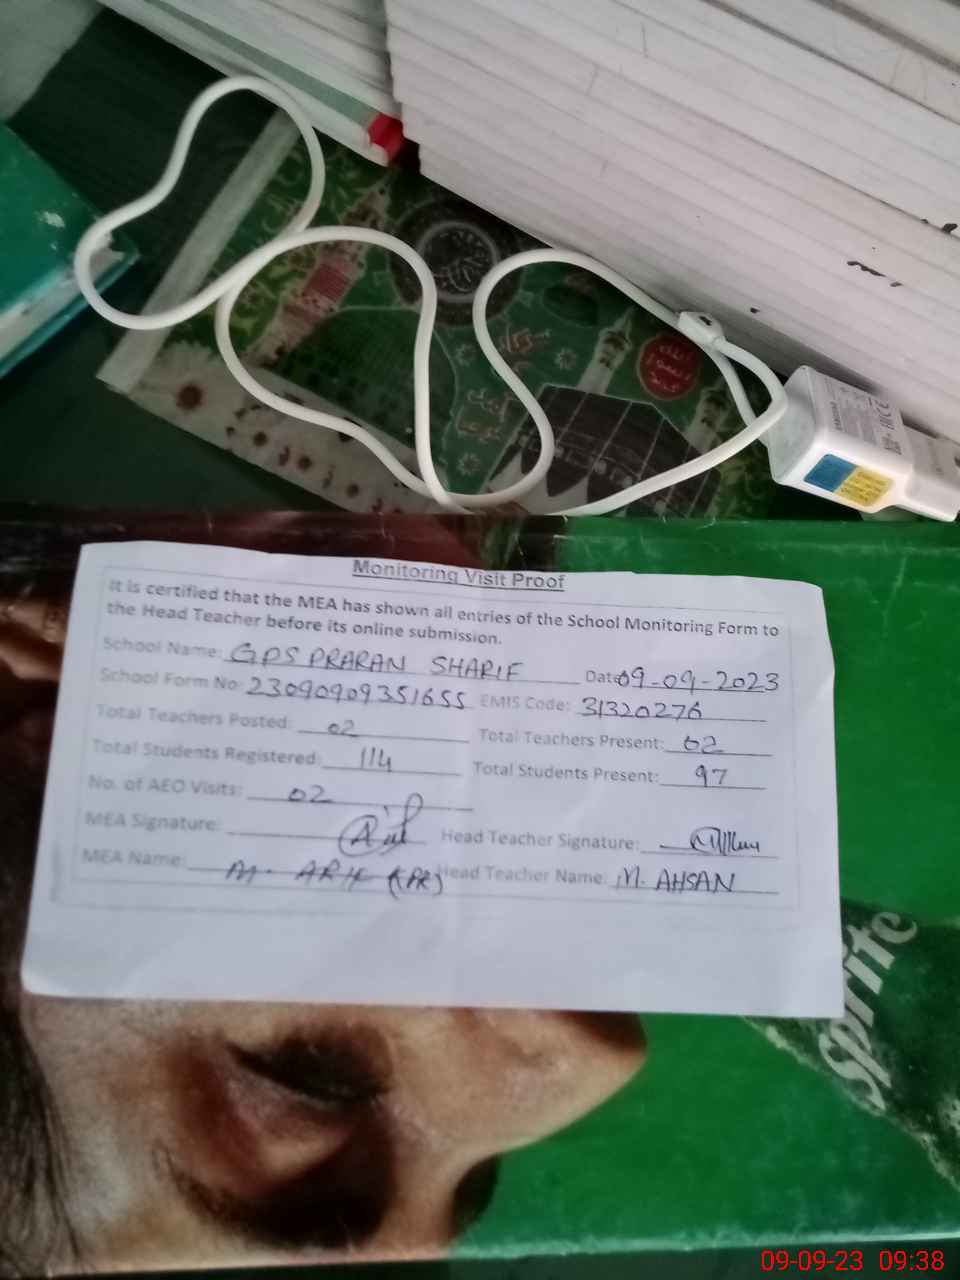 SAMSUNG
الله
Monitoring Visit Proof
It is certified that the MEA has shown all entries of the School Monitoring Form to
the Head Teacher before its online submission.
School Name: GPS PRARAN SHARIF Date 09-09-2023
School Form No: 23090909351655 EMIS Code: 31320276
Total Teachers Posted: 02 Total Teachers Present: 02
Total Students Registered: 114 Total Students Present: 97
No. of AEO Visits: 02
MEA Signature: Head Teacher Signature:
MEA Name: M. ARIF (PR) Head Teacher Name: M. AHSAN
Sprite
09-09-23 09:38